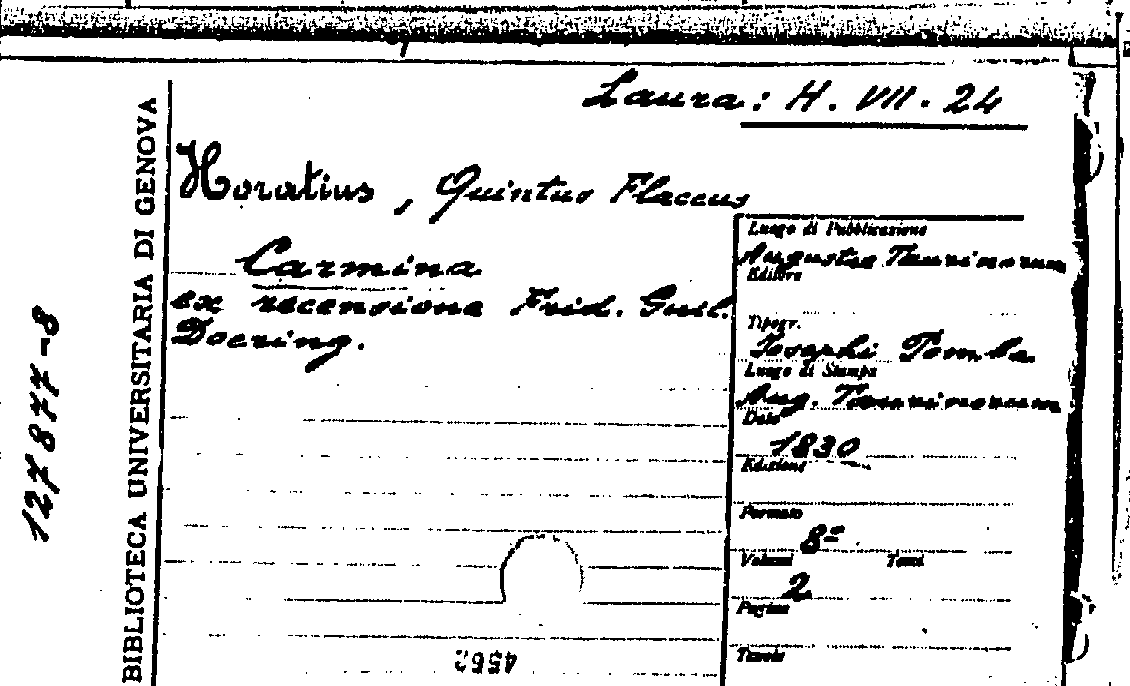 Laura: H. VII. 24
BIBLIOTECA UNIVERSITARIA DI GENOVA
127877-8
Horatius, Quintus Flaccus
Carmina
ex recensione Frid. Guil.
Doering.
Luogo di Pubblicazione
Augustae Taurinorum
Editore
Tipogr.
Iosephi Pomba
Luogo di Stampa
Aug. Taurinorum
Data
1830
Edizione
Formato
8º
Volumi Tomi
2
Pagine
Tavole
4562